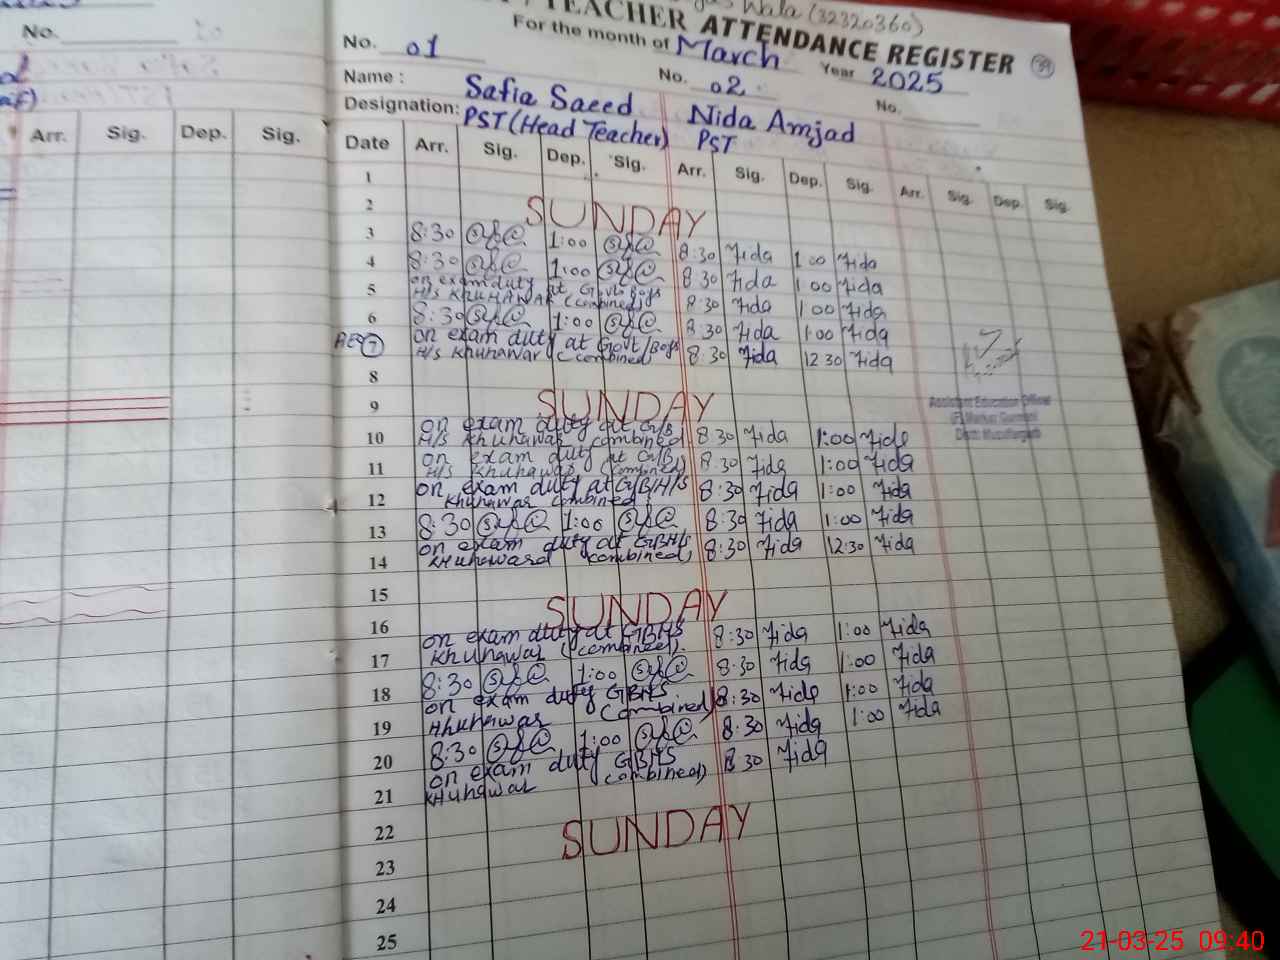 Wala (32320360)
TEACHER ATTENDANCE REGISTER
For the month of March Year 2025
No.
No. 01 No. 02 No.
Name : Safia Saeed Nida Amjad
Designation: PST (Head Teacher) PST
Arr. Sig. Dep. Sig.
Date Arr. Sig. Dep. Sig. Arr. Sig. Dep. Sig. Arr. Sig. Dep. Sig.
1
2 SUNDAY
3 8:30 1:00 8:30 Fida 1:00 Fida
4 8:30 1:00 8:30 Fida 1:00 Fida
on exam duty at Govt Boys
5 H/S KHUHAWAR (combined) 8:30 Fida 1:00 Fida
6 8:30 1:00 8:30 Fida 1:00 Fida
on exam duty at Govt/Boys
7 H/S Khuhawar (combined 8:30 Fida 12:30 Fida
8
9 SUNDAY
Assistant Education Officer
on exam duty at G/B
10 H/S Khuhawar combined 8:30 Fida 1:00 Fida
on exam duty at G/B
11 H/S Khuhawar (combined) 8:30 Fida 1:00 Fida
on exam duty at G/B/H/S
12 Khuhawar combined 8:30 Fida 1:00 Fida
13 8:30 1:00 8:30 Fida 1:00 Fida
on exam duty at GBH/S
14 Khuhaward combined) 8:30 Fida 12:30 Fida
15
16 SUNDAY
on exam duty at GBHS
17 Khuhawar (combined). 8:30 Fida 1:00 Fida
18 8:30 1:00 8:30 Fida 1:00 Fida
on exam duty GBHS
19 Khuhawar (combined) 8:30 Fida 1:00 Fida
20 8:30 1:00 8:30 Fida 1:00 Fida
on exam duty GBHS
21 Khuhawar combined) 8:30 Fida
22
23 SUNDAY
24
25
21-03-25 09:40